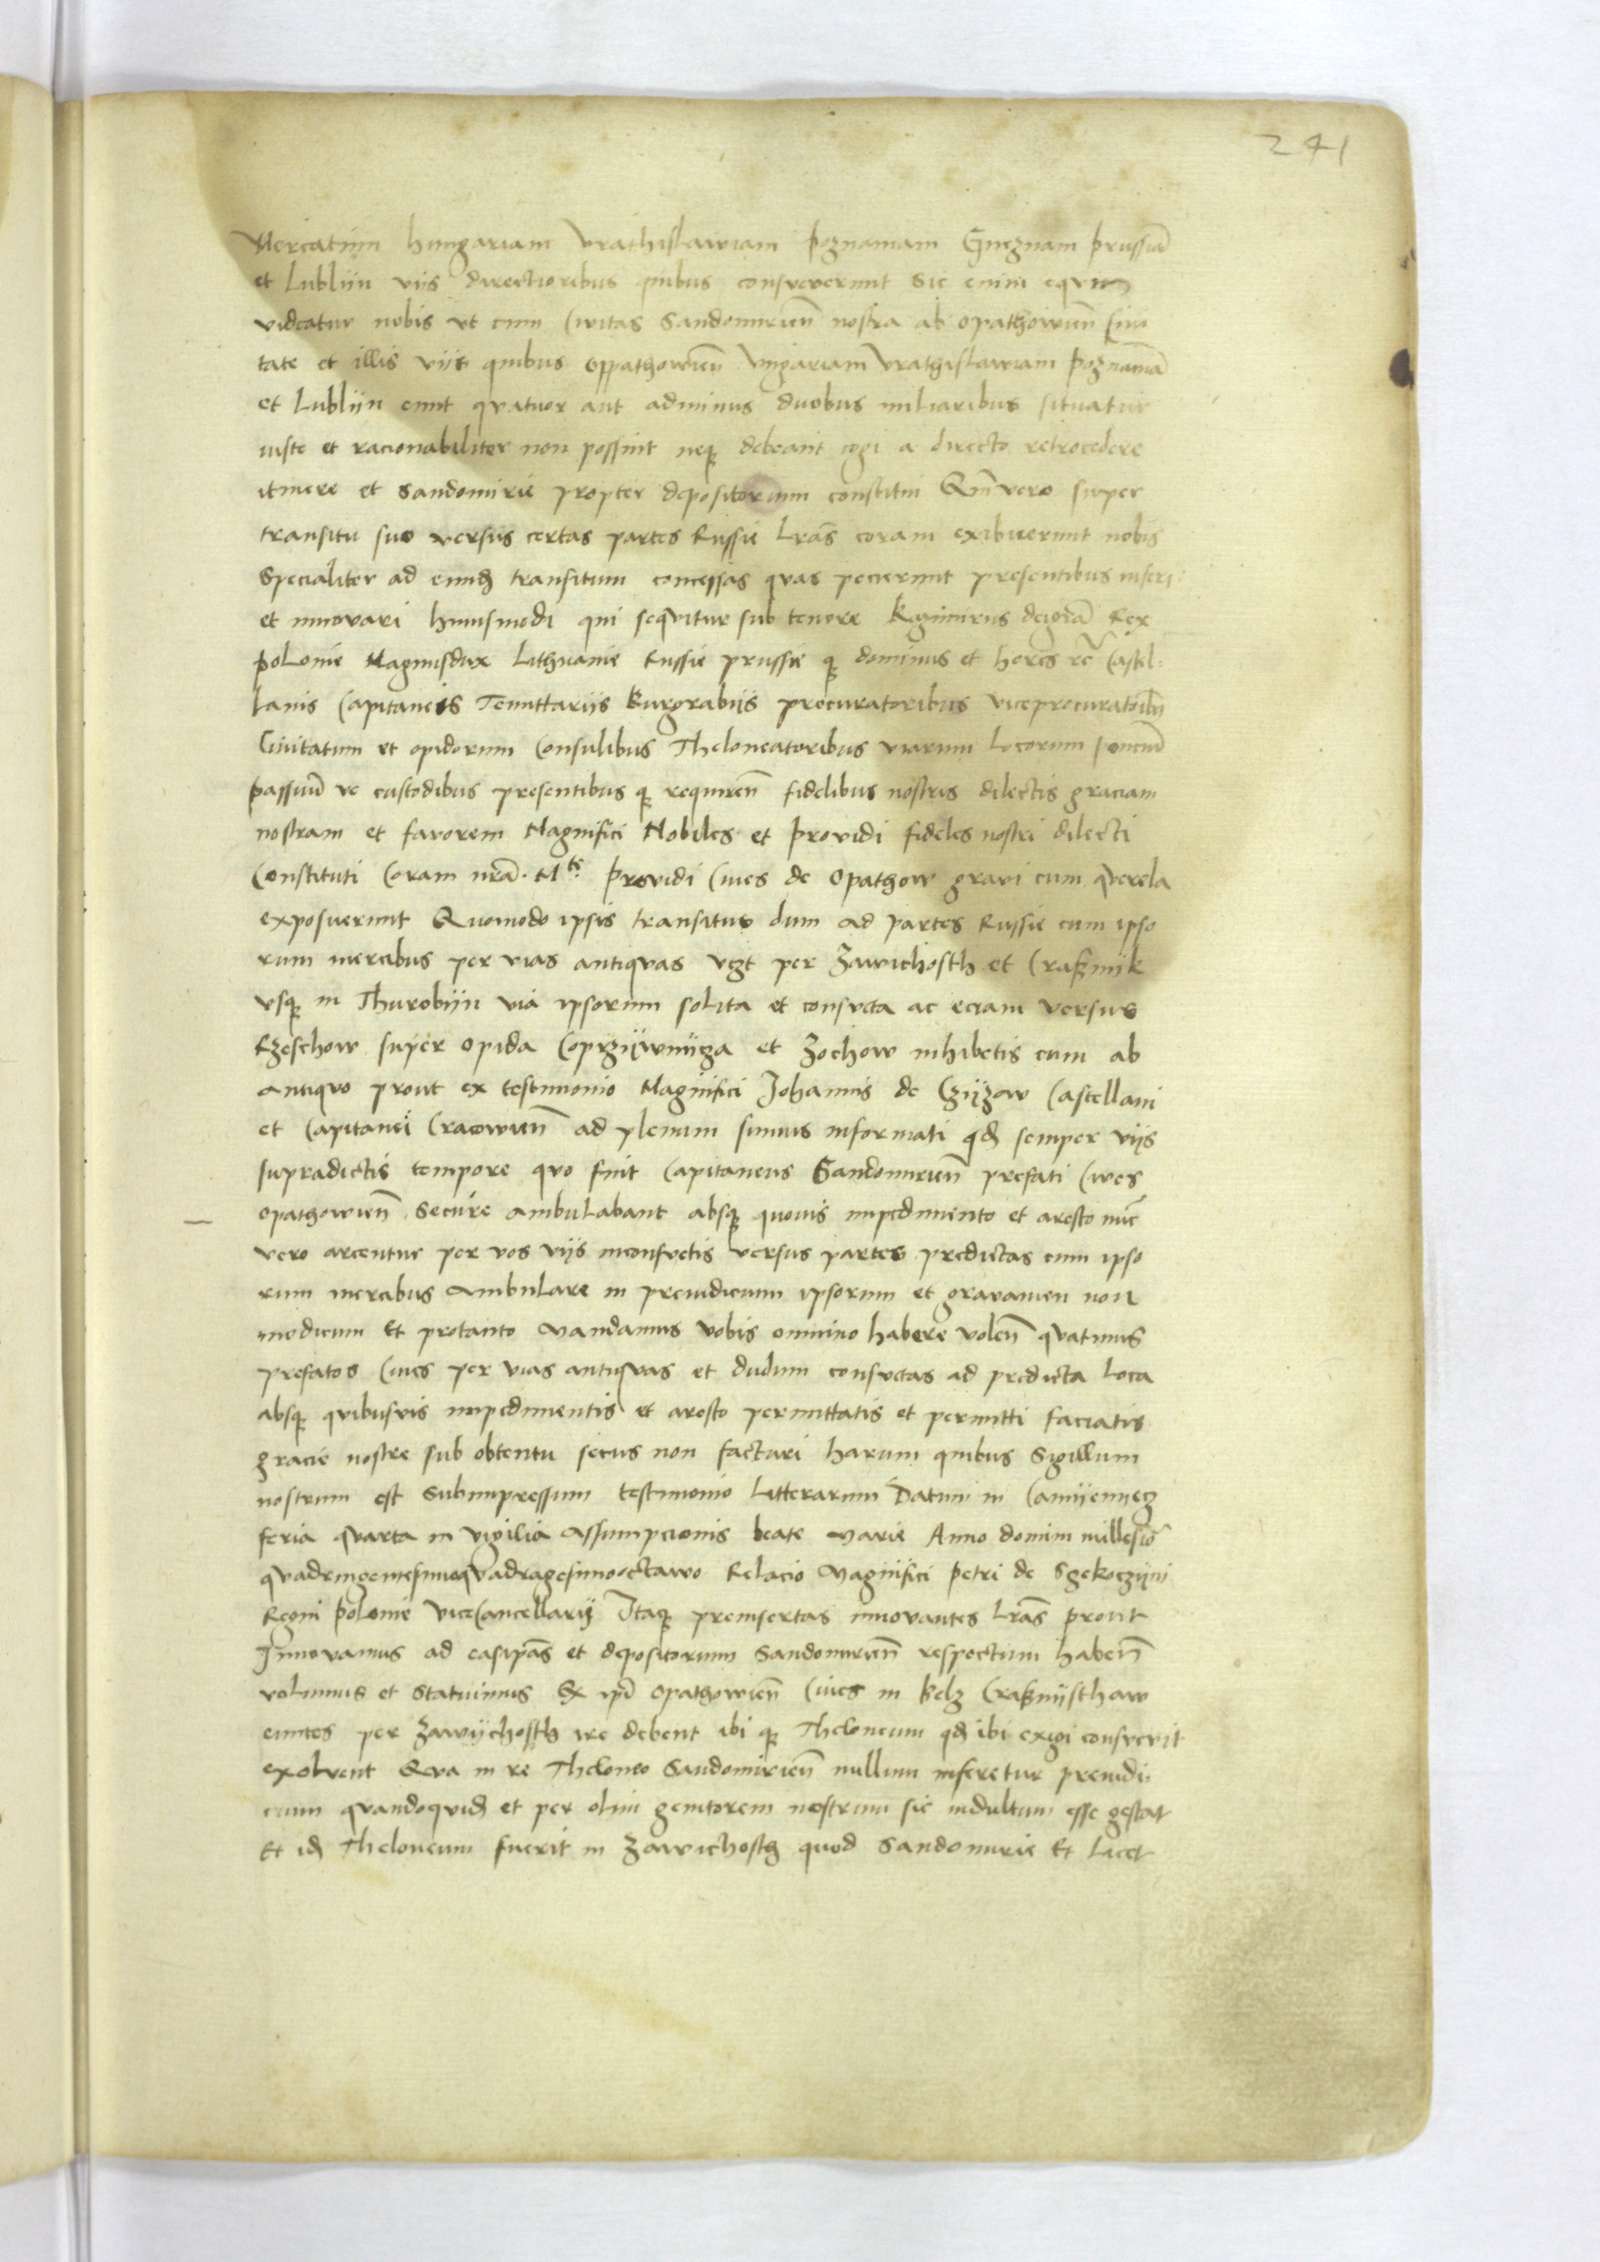 241
Mercatum hungariam vrathislawiam poznaniam Gneznam prussiā
et Lubliin viis directioribus quibus consveverunt Sic enim equm
videatur nobis vt cum Civitas Sandomirieñ nostra ab opathowieñ Civi
tate et illis viis quibus oppathowieñ vngariam vrathislawiam poznaniā
et Lubliin eunt qvatuor aut adminus duobus miliaribus situatur
iuste et racionabiliter non possint neqȝ debeant cogi a directo retrocedere
itinere et Sandomirie propter depositorium constitui Qm̄ vero super
transitu suo versus certas partes Russie Lrās coram exibuerunt nobis
Specialiter ad eundȝ transitum concessas qvas pecierunt presentibus inseri
et innovari huiusmodi qui seqvitur sub tenore Kazimirus dei grā Rex
polonie Magnusdux Lithvanie Russie prussie qȝ dominus et heres rc̄ Castel-
lanis Capitaneis Tenuttariis Burgrabiis procuratoribus viceprocuratoribȝ
Civitatum et opidorum Consulibus Theloneatoribus viarum Locorum ponciū
passuū ve custodibus presentibus qȝ requireñ fidelibus nostris dilectis graciam
nostram et favorem Magnifici Nobiles et providi fideles nostri dilecti
Constituti Coram nrā Mte. providi Cives de Opathow gravi cum qverela
exposverunt Qvomodo ipsis transitus dum ad partes Russie cum ipso
rum mercibus per vias antiqvas vzt per Zawichosth et Crasznik
vsqȝ in Thurobiin via ipsorum solita et consveta ac eciam versus
Rzeschow super opida Coprziiwniiza et Zochow inhibetis cum ab
antiqvo prout ex testimonio Magnifici Johannis de Cziizow Castellani
et Capitanei Cracowieñ ad plenum sumus informati qdȝ semper viis
supradictis tempore qvo fuit Capitaneus Sandomirieñ prefati Cives
opathowieñ Secure ambulabant absqȝ quovis impedimento et aresto nūc
vero arcentur per vos viis inconsvetis versus partes predictas cum ipso
rum mercibus ambulare in preiudicium ipsorum et gravamen non
modicum Et protanto Mandamus vobis omnino habere voleñ qvatinus
prefatos Cives per vias antiqvas et dudum consvetas ad predicta Loca
absqȝ qvibusvis impedimentis et aresto permittatis et permitti faciatis
gracie nostre sub obtentu secus non facturi harum quibus Sigillum
nostrum est Subimpressum testimonio Litterarum Datum in Camiieniecz
feria qvarta in vigilia Assumpcionis beate Marie Anno domini millesio
qvadringentesimoqvadragesimooctavo Relacio Magnifici petri de Szekocziini
Regni polonie viceCancellarii Itaqȝ preinsertas innovantes Lrās prout
Innovamus ad easipās et depositorium Sandomirieñ respectum habeñ
volumus et Statuimus Qȝ ipī opathowieñ Cives in Belz Crasniisthaw
euntes per Zawiichosth ire debent ibi qȝ Theloneum qdȝ ibi exigi consvevit
exolvent Qva in re Theloneo Sandomirieñ nullum inferetur preiudi-
cium qvandoqvidȝ et per olim genitorem nostrum sic indultum esse gestat
Et idȝ Theloneum fuerit in Zawichosth quod Sandomirie Et Licet